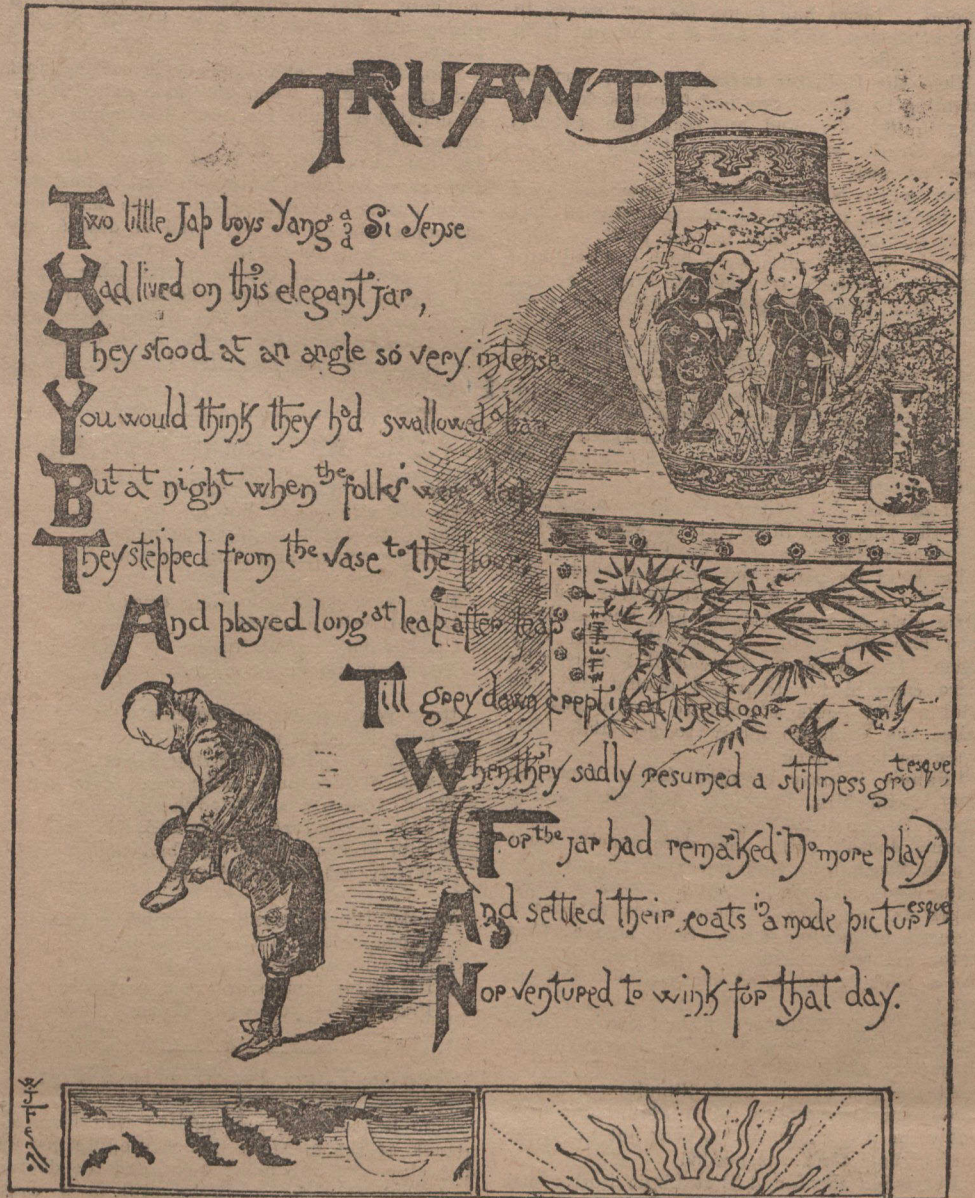 TRUANTS
Two little Jap boys Yang and Si Yense
Had lived on this elegant jar,
They stood at an angle so very intense
You would think they had swallowed a bar.
But at night when the folks were asleep
They stepped from the vase to the floor,
And played long at leap after leap
Till grey dawn crept in at the door.
When they sadly resumed a stiffness grotesque,
(For the jar had remarked "No more play)
And settled their coats in a mode picturesque
Nor ventured to wink for that day.